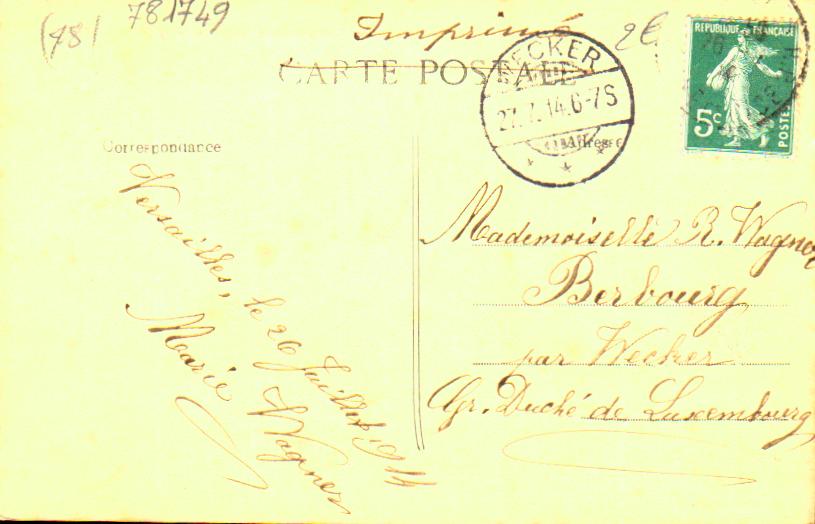 (78) 781749
Imprimé 2€
CARTE POSTALE
REPUBLIQUE FRANÇAISE
5c
POSTES
WECKER
27.7.14.6-7S
Correspondance
Adresse
Versailles, le 26 Juillet 1914
Marie Wagner
Mademoiselle R. Wagner
Berbourg
par Wecker
Gr. Duché de Luxembourg